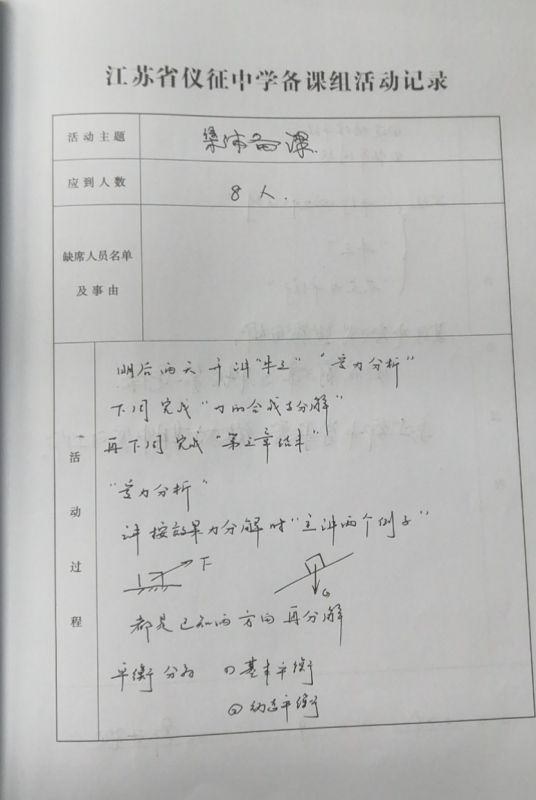 江苏省仪征中学备课组活动记录
活动主题
集体备课.
应到人数
8 人.
缺席人员名单
及事由
活动过程
明后两天 讲"牛三" "受力分析"
下周完成"力的合成与分解"
再下周完成"第三章结束"
"受力分析"
讲按效果力分解时"主讲两个例子"
F
G
都是已知两方向再分解
平衡分为 ①基本平衡
②动态平衡